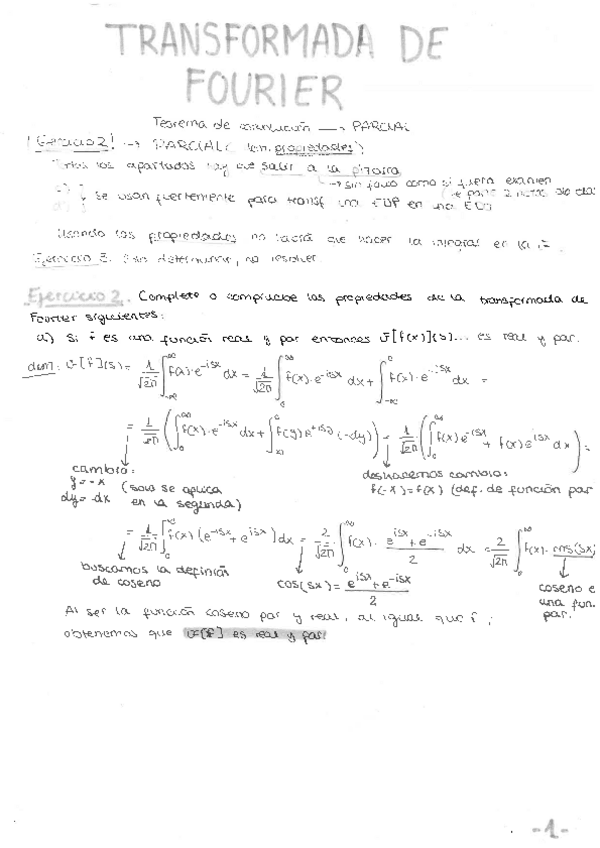 TRANSFORMADA DE
FOURIER
Teorema de convolución → PARCIAL
Ejercicio 2 → PARCIAL (en propiedades)
Todos los apartados hay que salir a la pizarra
→ sin folio como si fuera examen
se usan fuertemente para transf una EDP en una EDO
Usando las propiedades no habrá que hacer la integral en
Ejercicio 3: Solo determinar, no resolver.
Ejercicio 2. Complete o compruebe las propiedades de la transformada de
Fourier siguientes:
a) Si f es una función real y par entonces F[f(x)](s)... es real y par.
dem: F[f](s) = 1/√2π ∫_{-∞}^{∞} f(x)·e^{-isx} dx = 1/√2π ∫_0^∞ f(x)·e^{-isx} dx + ∫_{-∞}^0 f(x)·e^{-isx} dx =
= 1/√2π (∫_0^∞ f(x)·e^{-isx} dx + ∫_∞^0 f(y) e^{+isy} (-dy)) = 1/√2π (∫_0^∞ f(x) e^{-isx} + f(x) e^{isx} dx) =
cambio:
y = -x (solo se aplica
dy = -dx en la segunda)
deshacemos cambio:
f(-x) = f(x) (def. de función par
= 1/√2π ∫_0^∞ f(x) (e^{-isx} + e^{isx}) dx = 2/√2π ∫_0^∞ f(x) · (e^{isx} + e^{-isx})/2 dx = 2/√2π ∫_0^∞ f(x) · cos(sx)
buscamos la definición
de coseno
cos(sx) = (e^{isx} + e^{-isx})/2
coseno e
una fun.
par.
Al ser la función coseno par y real, al igual que f,
obtenemos que F[f] es real y par.
-1-